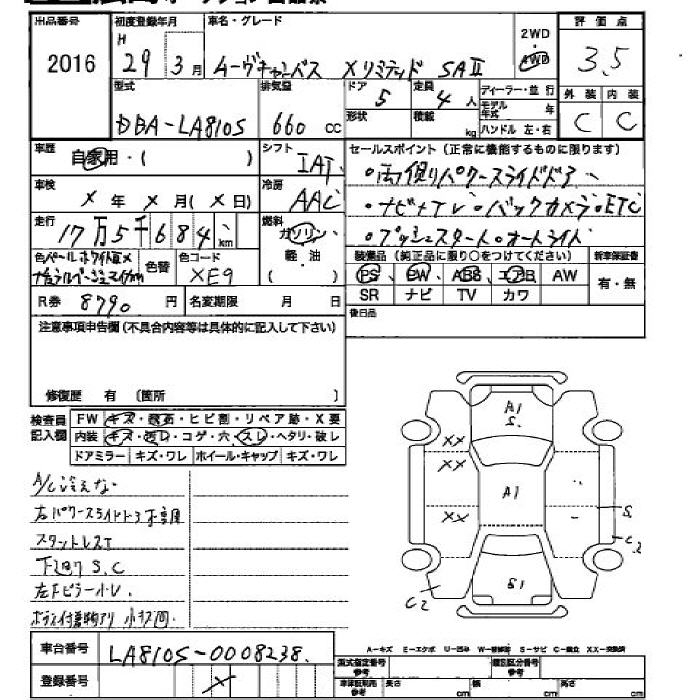 出品番号 初度登録年月 車名・グレード 2WD 評価点
2016 H 29 3月 ムーヴキャンバス Xリミテッド SAⅡ 4WD 3.5
型式 排気量 ドア 定員 ディーラー・並行 外装 内装
DBA-LA810S 660 cc 5 4人 モデル年式 C C
形状 積載 kg ハンドル 左・右
車歴 自家用・( ) シフト IAT セールスポイント (正常に機能するものに限ります)
・両側パワースライドドア
車検 X年 X月 (X日) 冷房 AAC ・ナビ+TV・バックカメラ・ETC
走行 17万5千684 km 燃料 ガソリン 軽油 ( ) ・プッシュスタート・オートライト
色 パールホワイトⅢ× 色替 色コード XE9
装備品 (純正品に限り○をつけてください) 新車保証書
PS PW ABS エアB AW 有・無
SR ナビ TV カワ
R券 8790 円 名変期限 月 日 後日品
注意事項申告欄 (不具合内容等は具体的に記入して下さい)
修復歴 有 〔箇所 〕
検査員記入欄 FW キズ・飛石・ヒビ割・リペア跡・X要
内装 キズ・汚レ・コゲ・穴・スレ・ヘタリ・破レ
ドアミラー キズ・ワレ ホイール・キャップ キズ・ワレ
A/C冷えない
右パワースライドドア不良
スタットレスT
下廻り S.C
左Fピラー小U.
ガラス付着物アリ 小キズ凹
A1
S.
XX
XX
A1
XX
S
C2
S1
C2
A-キズ E-エクボ U-凹み W-補修跡 S-サビ C-腐食 XX-交換済
車台番号 LA810S-0008238
型式指定番号 参考 類別区分番号 参考
登録番号 X 長さ cm 幅 cm 高さ cm